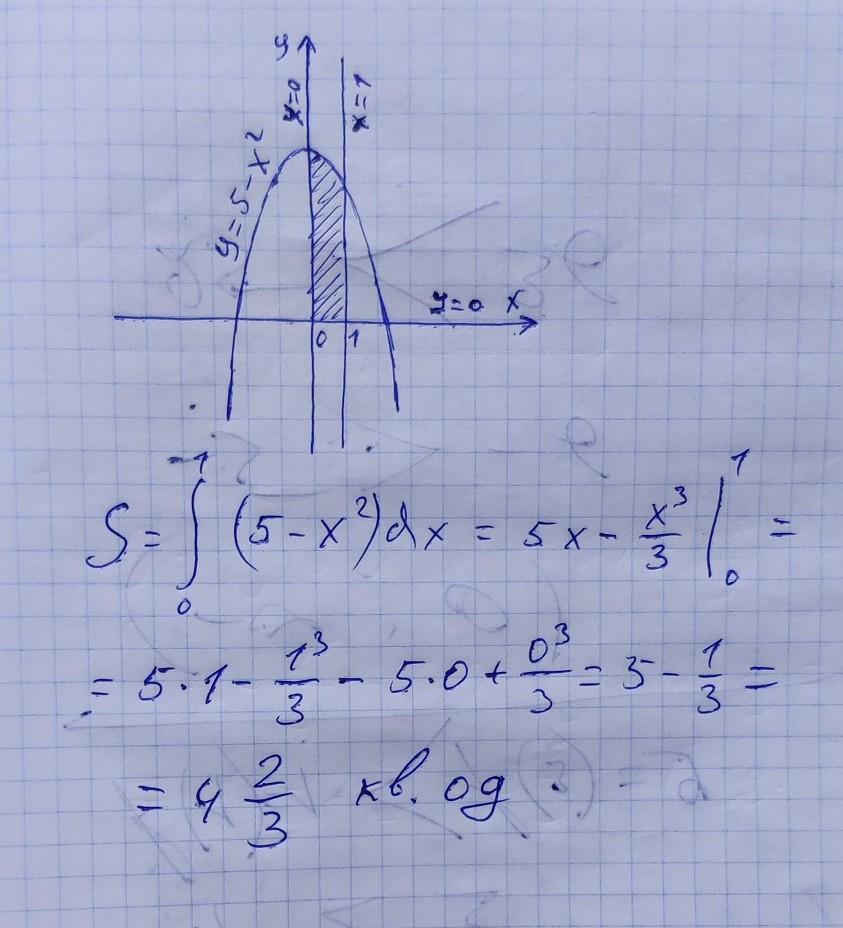 y
x=0
x=1
y=5-x²
y=0 x
0 1
S = ∫₀¹ (5-x²)dx = 5x - x³/3 |₀¹ =
= 5·1 - 1³/3 - 5·0 + 0³/3 = 5 - 1/3 =
= 4 2/3 кв. од